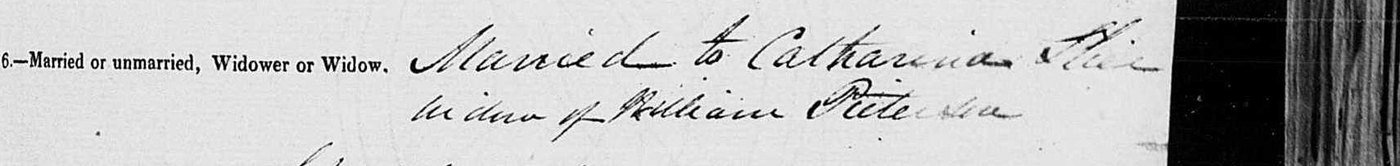 6.—Married or unmarried, Widower or Widow. Married to Catharina
widow of William Pieterse